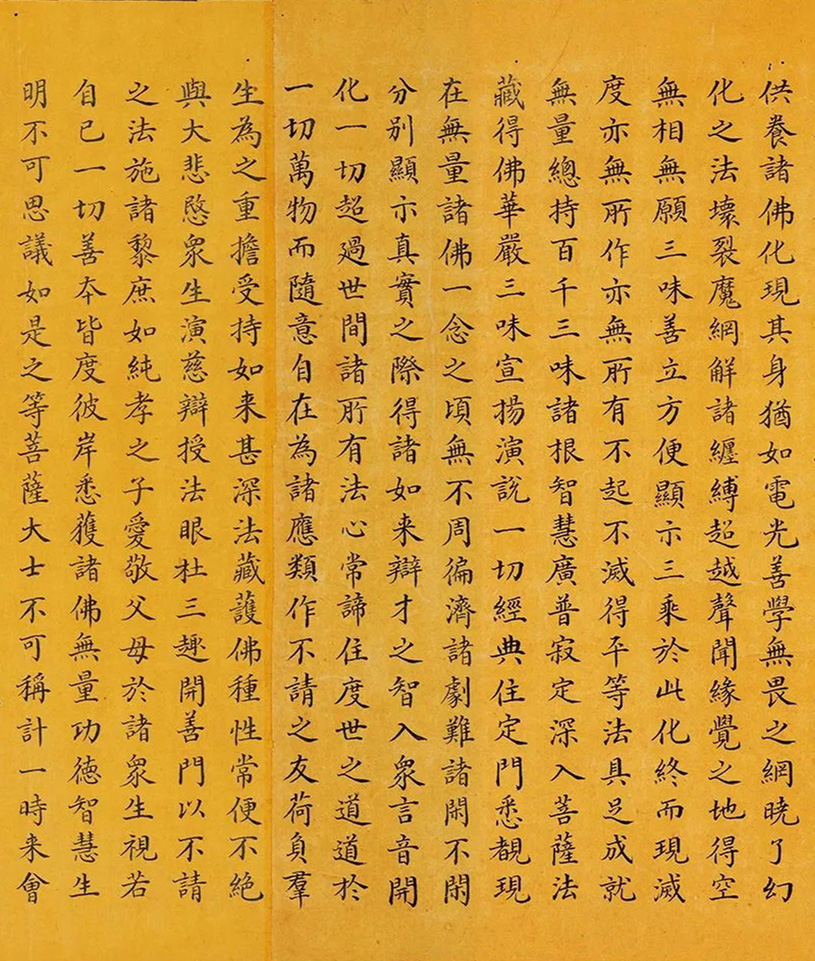 供養諸佛化現其身猶如電光善學無畏之網曉了幻
化之法壞裂魔網解諸纏縛超越聲聞緣覺之地得空
無相無願三昧善立方便顯示三乘於此化終而現滅
度亦無所作亦無所有不起不滅得平等法具足成就
無量總持百千三昧諸根智慧廣普寂定深入菩薩法
藏得佛華嚴三昧宣揚演說一切經典住定門悉覩現
在無量諸佛一念之頃無不周徧濟諸劇難諸閑不閑
分別顯示真實之際得諸如来辯才之智入衆言音開
化一切超過世間諸所有法心常諦住度世之道道於
一切萬物而隨意自在為諸應類作不請之友荷負羣
生為之重擔受持如来甚深法藏護佛種性常使不絕
與大悲愍衆生演慈辯授法眼杜三趣開善門以不請
之法施諸黎庶如純孝之子愛敬父母於諸衆生視若
自己一切善本皆度彼岸悉獲諸佛無量功德智慧生
明不可思議如是之等菩薩大士不可稱計一時来會